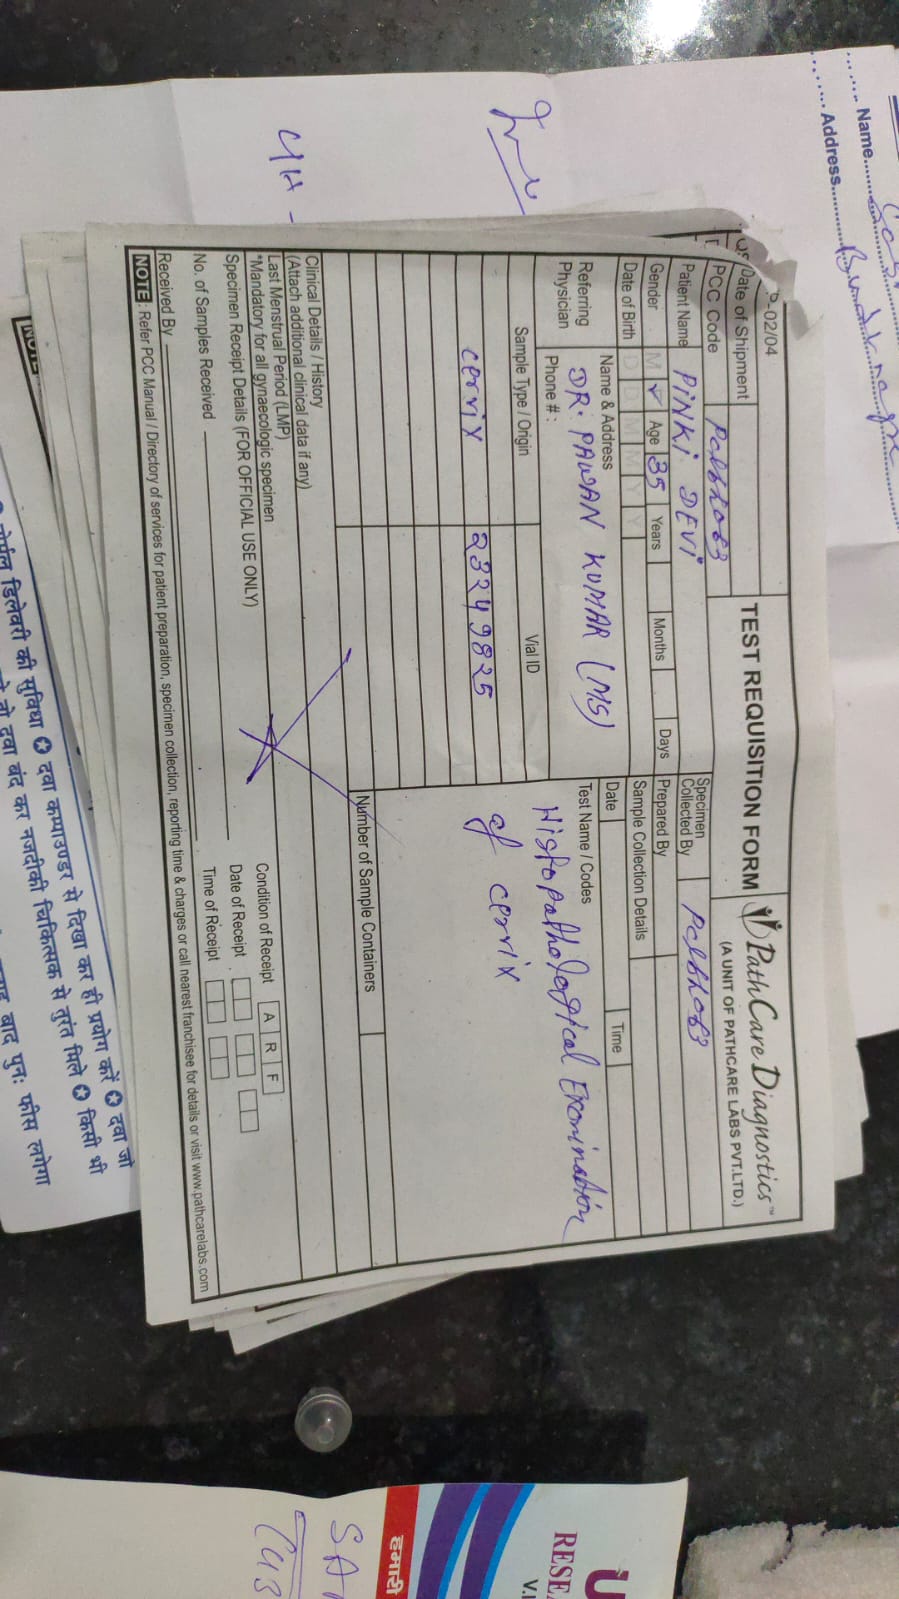 Name
Address
D-02/04
Date of Shipment
TEST REQUISITION FORM
PathCare Diagnostics™
(A UNIT OF PATHCARE LABS PVT.LTD.)
PCC Code
Specimen
Collected By
Patient Name PINKI DEVI
Gender M Age 35 Years Months Days
Prepared By
Date of Birth D D M M Y Y
Sample Collection Details
Date Time
Referring
Physician
Name & Address
DR. PAWAN KUMAR (MS)
Phone # :
Test Name / Codes
Histopathological Eromination
of cervix
Sample Type / Origin Vial ID
cervix 23249825
Number of Sample Containers
Clinical Details / History
(Attach additional clinical data if any)
Last Menstrual Period (LMP)
*Mandatory for all gynaecologic specimen
Specimen Receipt Details (FOR OFFICIAL USE ONLY)
Condition of Receipt A R F
Date of Receipt
No. of Samples Received
Time of Receipt
Received By
NOTE : Refer PCC Manual / Directory of services for patient preparation, specimen collection, reporting time & charges or call nearest franchisee for details or visit www.pathcarelabs.com
नोर्मल डिलेवरी की सुविधा ✪ दवा कम्पाउण्डर से दिखा कर ही प्रयोग करें ✪ दवा जो
तो दवा बंद कर नजदीकी चिकित्सक से तुरंत मिले ✪ किसी भी
बाद पुनः फीस लगेगा
RESEA
V.I
हमारी